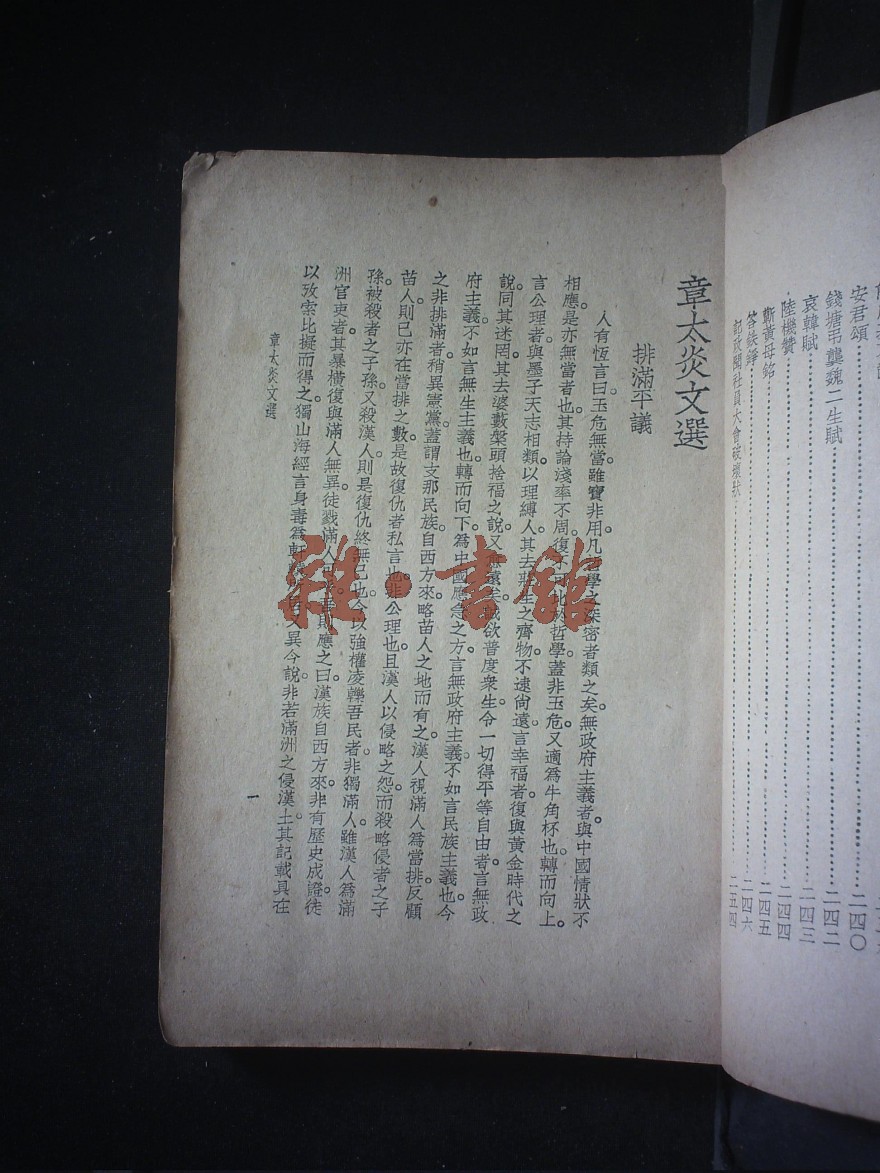 安君頌……二四〇
錢塘弔龔魏二生賦……二四二
哀韓賦……二四三
陸機贊……二四四
黃母銘……二四五
答鉄錚……二四六
記政聞社員大會破壞狀……二五四
章太炎文選
排滿平議
人有恆言曰玉卮無當雖寶非用凡學之深密者類之矣。無政府主義者與中國情狀不
相應。是亦無當者也。其持論淺率不周復不哲學蓋非玉卮又適為牛角杯也。轉而向上。
言公理者與墨子天志相類以理縛人其去莊生之齊物不逮尙遠言幸福者。復與黃金時代之
說。同其迷罔。其去婆藪槃頭捨福之說又無遠矣。欲普度衆生令一切得平等自由者。言無政
府主義不如言無生主義也。轉而向下。為中國應急之方。言無政府主義。不如言民族主義也。今
之非排滿者。稍異憲黨。蓋謂支那民族自西方來略苗人之地而有之。漢人視滿人為當排。反顧
苗人。則已亦在當排之數。是故復仇者私言也。非公理也。且漢人以侵略之怨。而殺略侵者之子
孫。被殺者之子孫。又殺漢人。則是復仇終無已也。今以強權凌轢吾民者。非獨滿人。雖漢人為滿
洲官吏者。其暴橫復與滿人無異。徒戮滿人則應之曰。漢族自西方來。非有歷史成證。徒
以攷索比擬而得之。獨山海經言身毒為軒轅又異今說。非若滿洲之侵漢土。其記載具在
章太炎文選
一
雜·書館